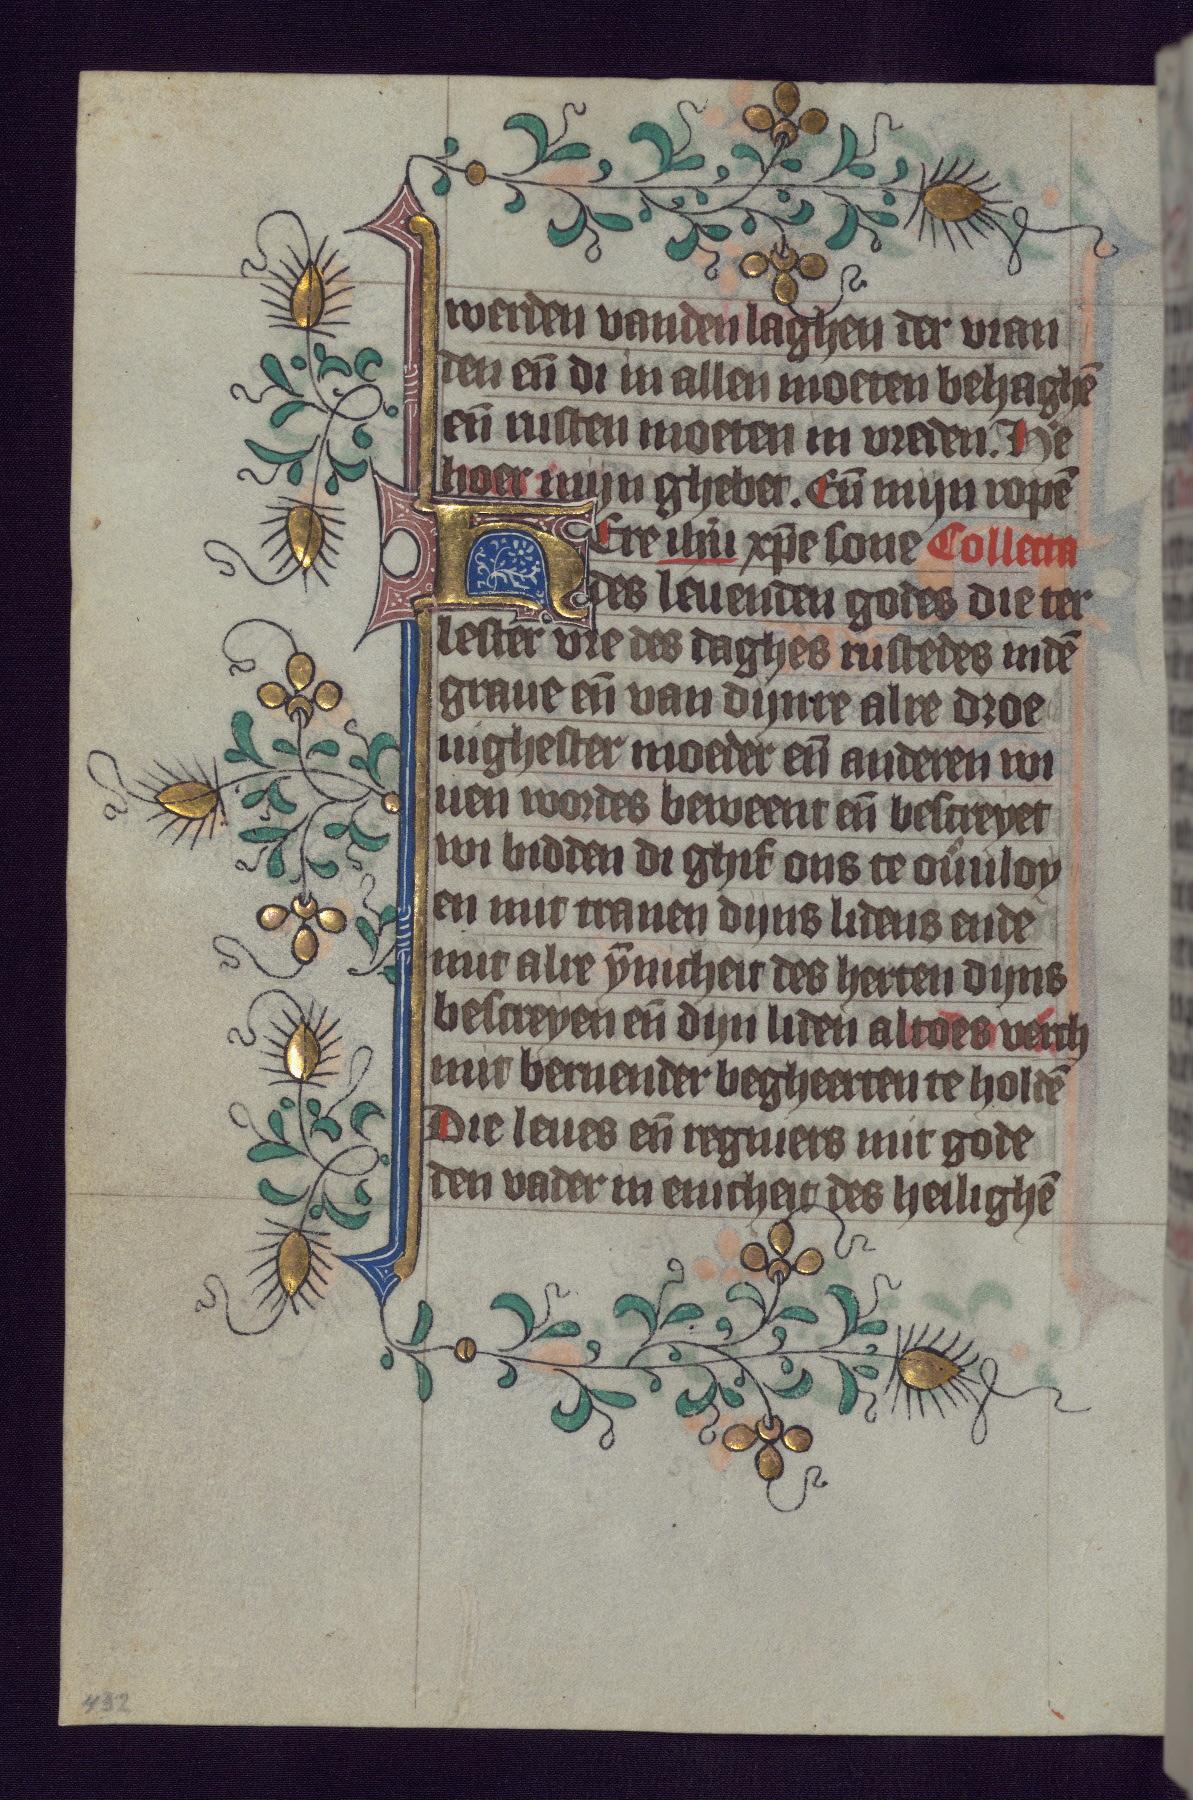 werden vanden laghen der vian
den en̄ di in allen moeten behaghē
en̄ rusten moeten in vreden. He
hoer mijn ghebet. En̄ mijn ropē
HEre ih̄u xp̄e sone Collecta
des leuenden godes die ter
lester vre des daghes rustedes indē
graue en̄ van dijnre alre droe
uighester moeder en̄ anderen wi
uen wordes beweent en̄ bescreyet
wi bidden di ghif ons te ou̾uloy
en mit tranen dijns lidens ende
mit alre ȳnicheit des herten dijns
bescreyen en̄ dijn liden altoes versch
mit bernender begheerten te holdē
Die leues en̄ regniers mit gode
den vader in enicheit des heilighē
432